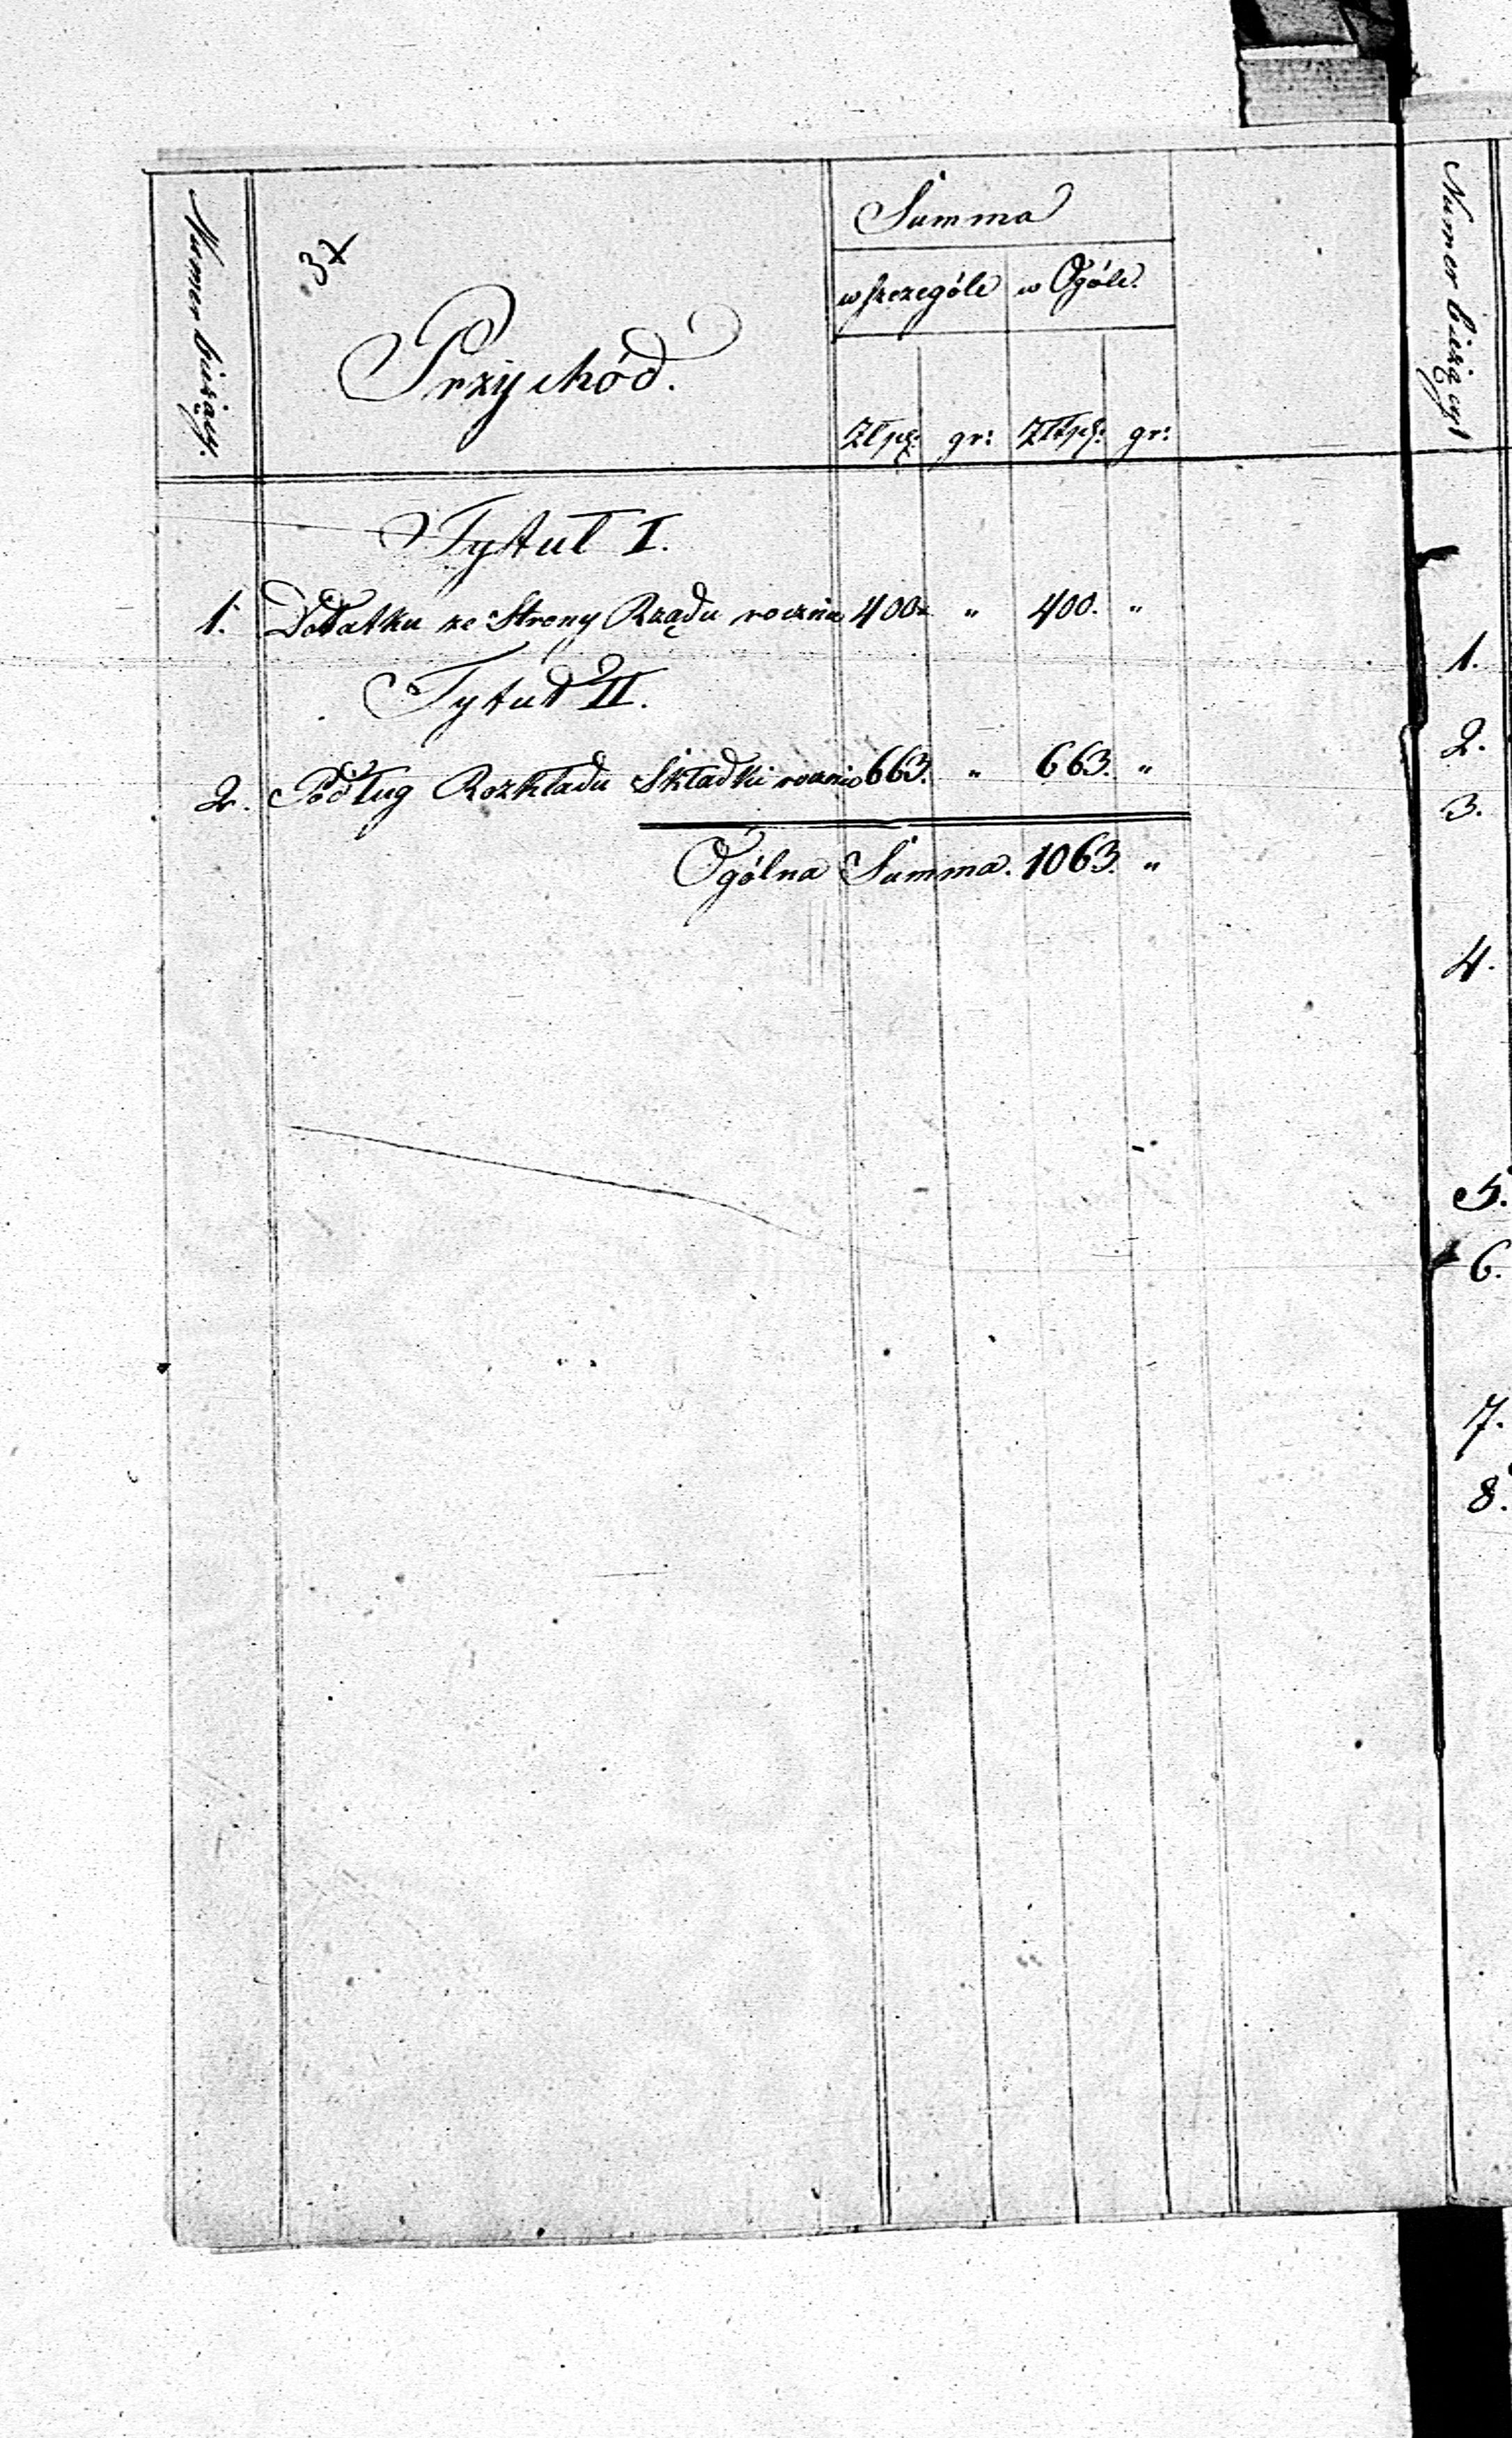 Numer bieżący.
Przychód.
Summa
w szczególe w Ogóle.
Złpg: gr: Złtpg: gr:
Tytuł I.
1. Dodatku ze Strony Rządu rocznie 400. " 400. "
Tytuł II.
2. Podług Rozkładu Składki rocznie 663. " 663. "
Ogólna Summa. 1063. "
Numer bieżący
1.
2.
3.
4.
5.
6.
7.
8.